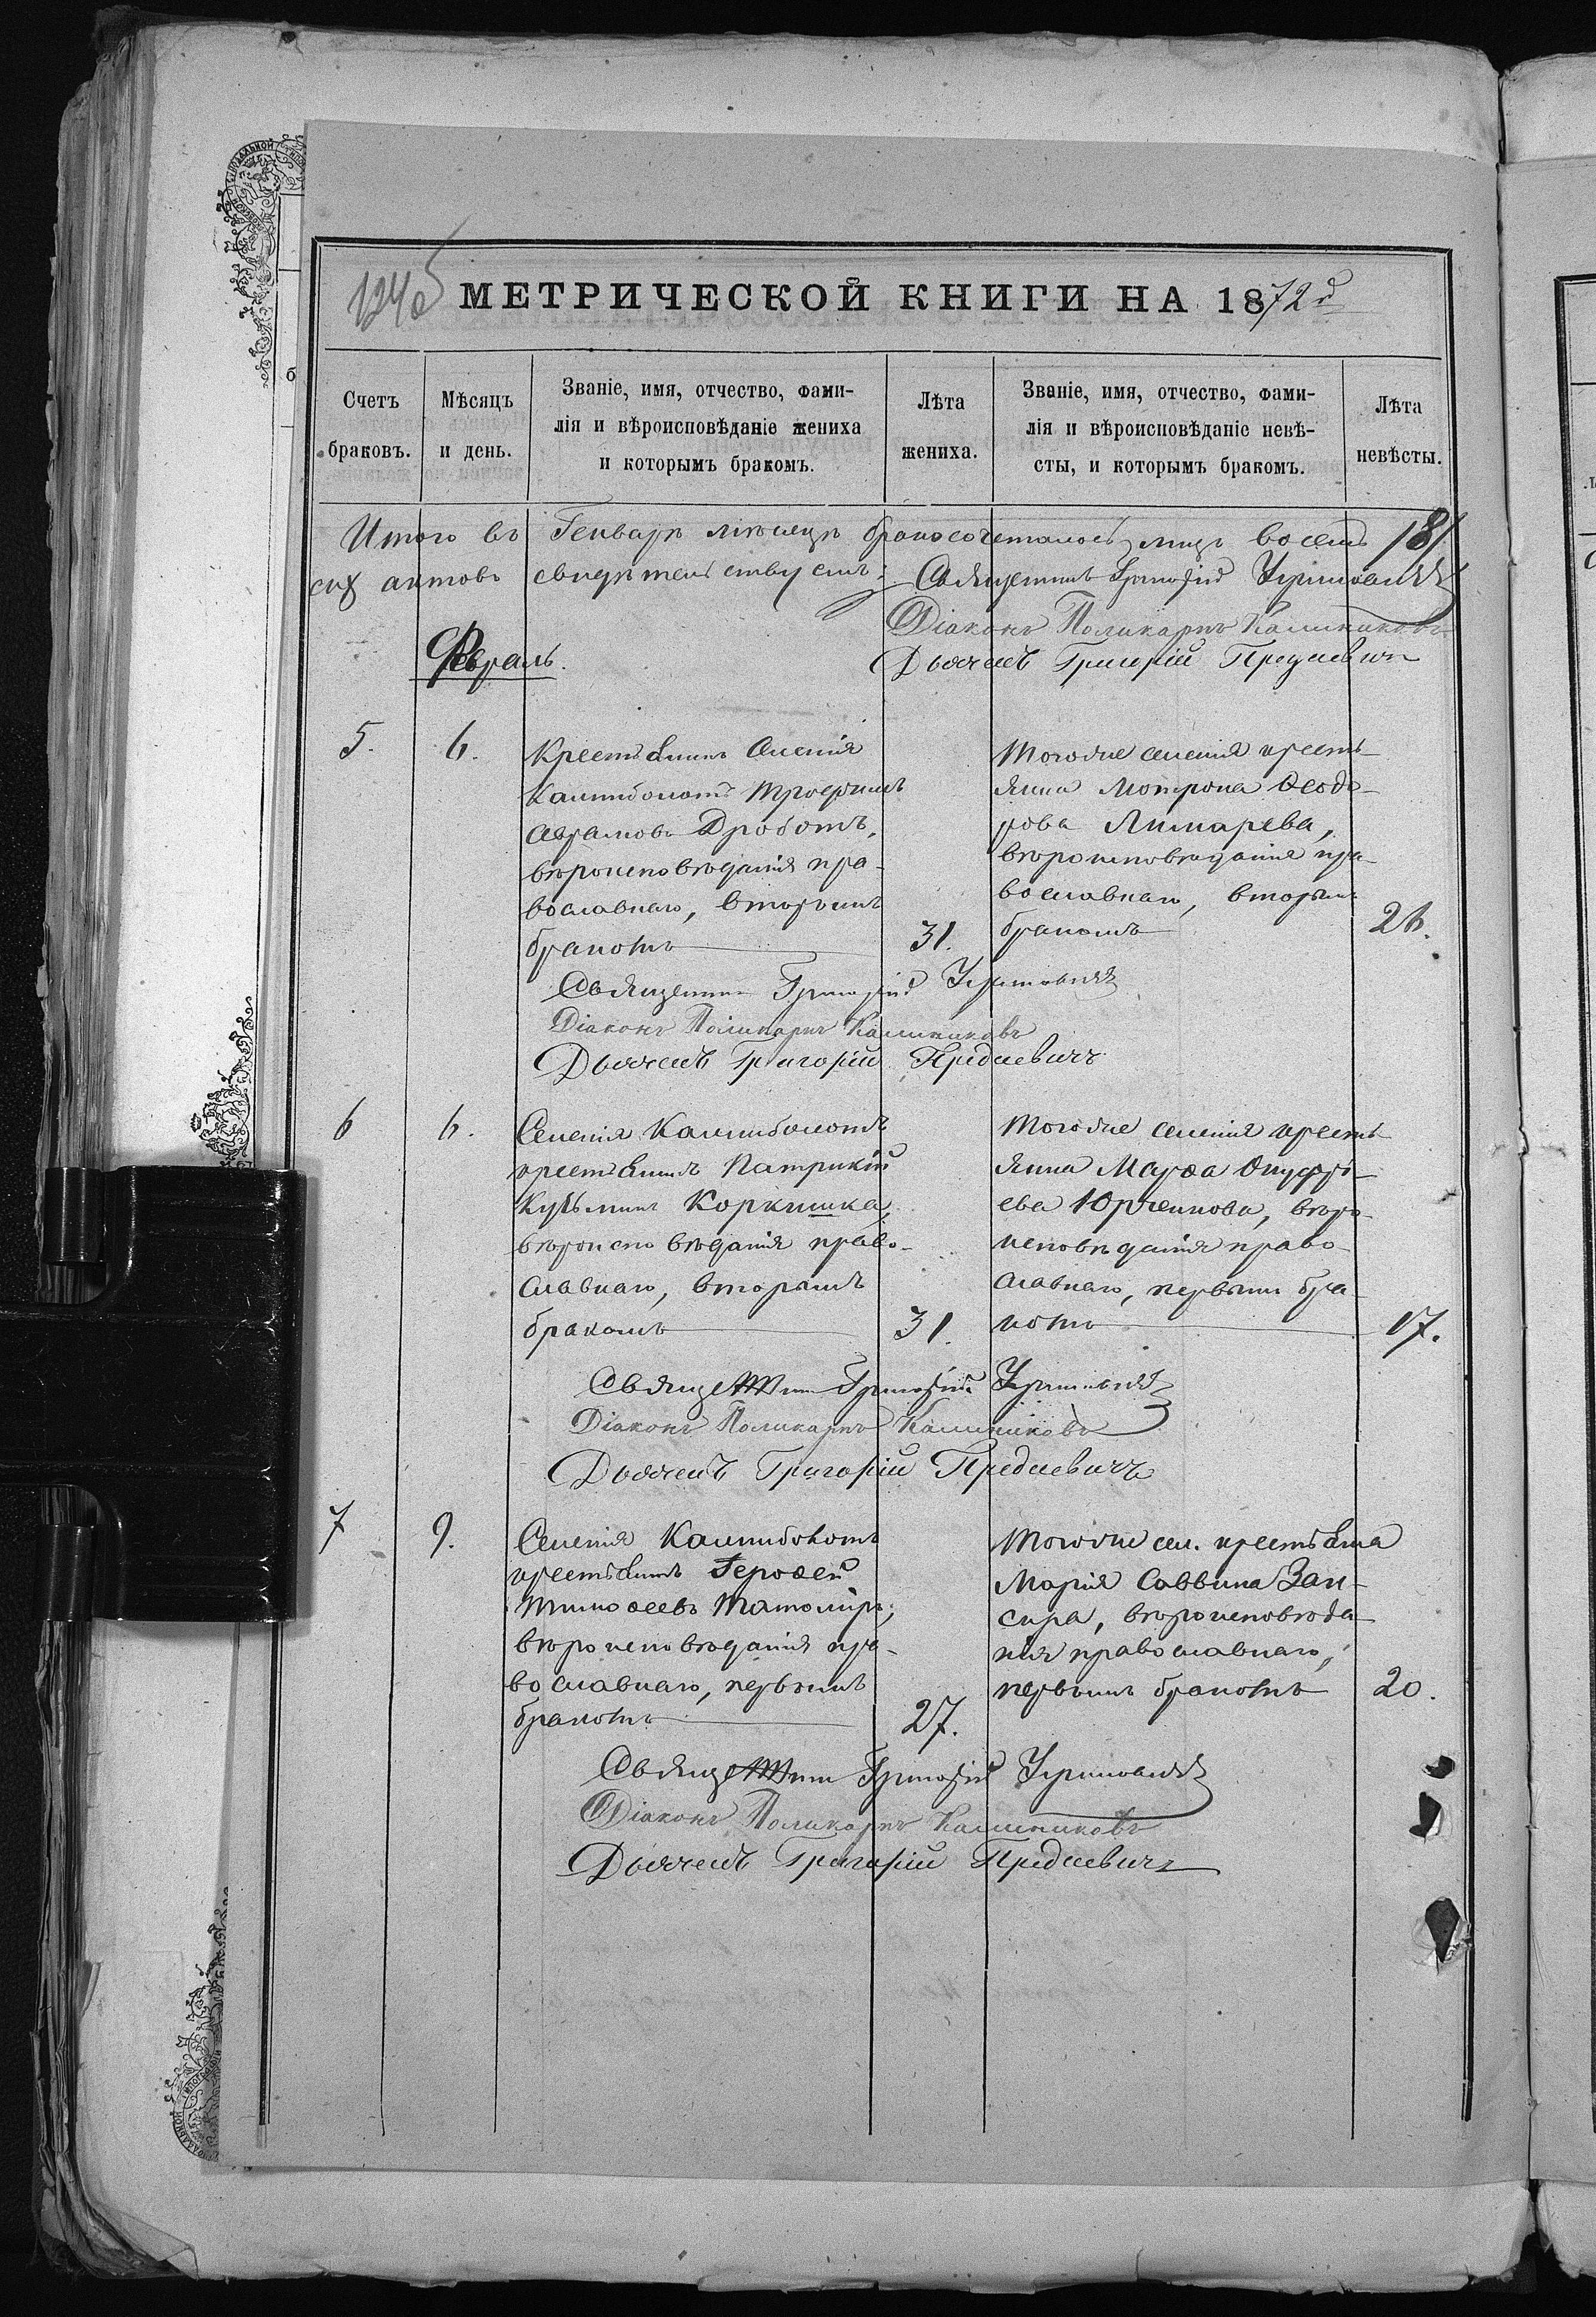 124об
МЕТРИЧЕСКОЙ КНИГИ НА 1872й
Счетъ браковъ.
Мѣсяцъ и день.
Званіе, имя, отчество, фами-
лія и вѣроисповѣданіе жениха
и которымъ бракомъ.
Лѣта жениха.
Званіе, имя, отчество, фами-
лія и вѣроисповѣданіе невѣ-
сты, и которымъ бракомъ.
Лѣта невѣсты.
Итого въ Генварѣ мѣсяцѣ бракосочеталось лицъ восемь /8/
актовъ свидѣтельствуемъ: Священникъ Григорій
Діаконъ Поликарпъ Калиниковъ
Дьячекъ Григорій
Февраль.
5.
6.
Крестьянинъ селенія
Калниболотъ Трофимъ
Аврамовъ Дроботъ,
вѣроисповѣданія пра-
вославнаго, вторымъ
бракомъ
31.
Тогоже селенія кресть-
янка Мотрона Ѳеодо-
рова Лимарева,
вѣроисповѣданія пра-
вославнаго, вторымъ
бракомъ
26.
Священникъ Григорій
Діаконъ Поликарпъ Калиниковъ
Дьячекъ Григорій
6
6.
Селенія Калниболотъ
крестьянинъ Патрикій
Кузьминъ Коркишка,
вѣроисповѣданія право-
славнаго, вторымъ
бракомъ
31.
Тогоже селенія кресть-
янка Марѳа Онуфрі-
ева Юрченкова, вѣро-
исповѣданія право-
славнаго, первымъ бра-
комъ
17.
Священникъ Григорій
Діаконъ Поликарпъ Калиниковъ
Дьячекъ Григорій
7
9.
Селенія Калниболотъ
крестьянинъ Героѳей
Тимоѳеевъ Татомiръ,
вѣроисповѣданія пра-
вославнаго, первымъ
бракомъ
27.
Тогоже сел. крестьянка
Марія Саввина
вѣроисповѣда-
нія православнаго,
первымъ бракомъ
20.
Священникъ Григорій
Діаконъ Поликарпъ Калиниковъ
Дьячекъ Григорій